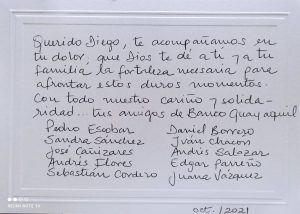 Querido Diego, te acompañamos en
tu dolor; que Dios te dé a ti y a tu
familia la fortaleza necesaria para
afrontar estos duros momentos.
Con todo nuestro cariño y solida-
ridad... tus amigos de Banco Guayaquil
Pedro Escobar Daniel Borrero
Sandra Sánchez Iván Chacon
José Cañizares Andrés Salazar
Andrés Flores Edgar Parreño
Sebastián Cordero Juana Vázquez
oct. / 2021